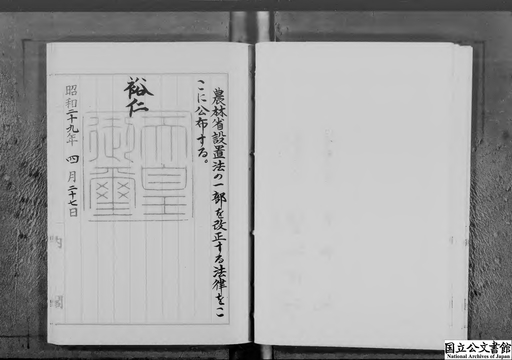 農林省設置法の一部を改正する法律をこ
こに公布する。
裕仁
天皇
御璽
昭和二十九年 四月二十七日
内閣
国立公文書館
National Archives of Japan